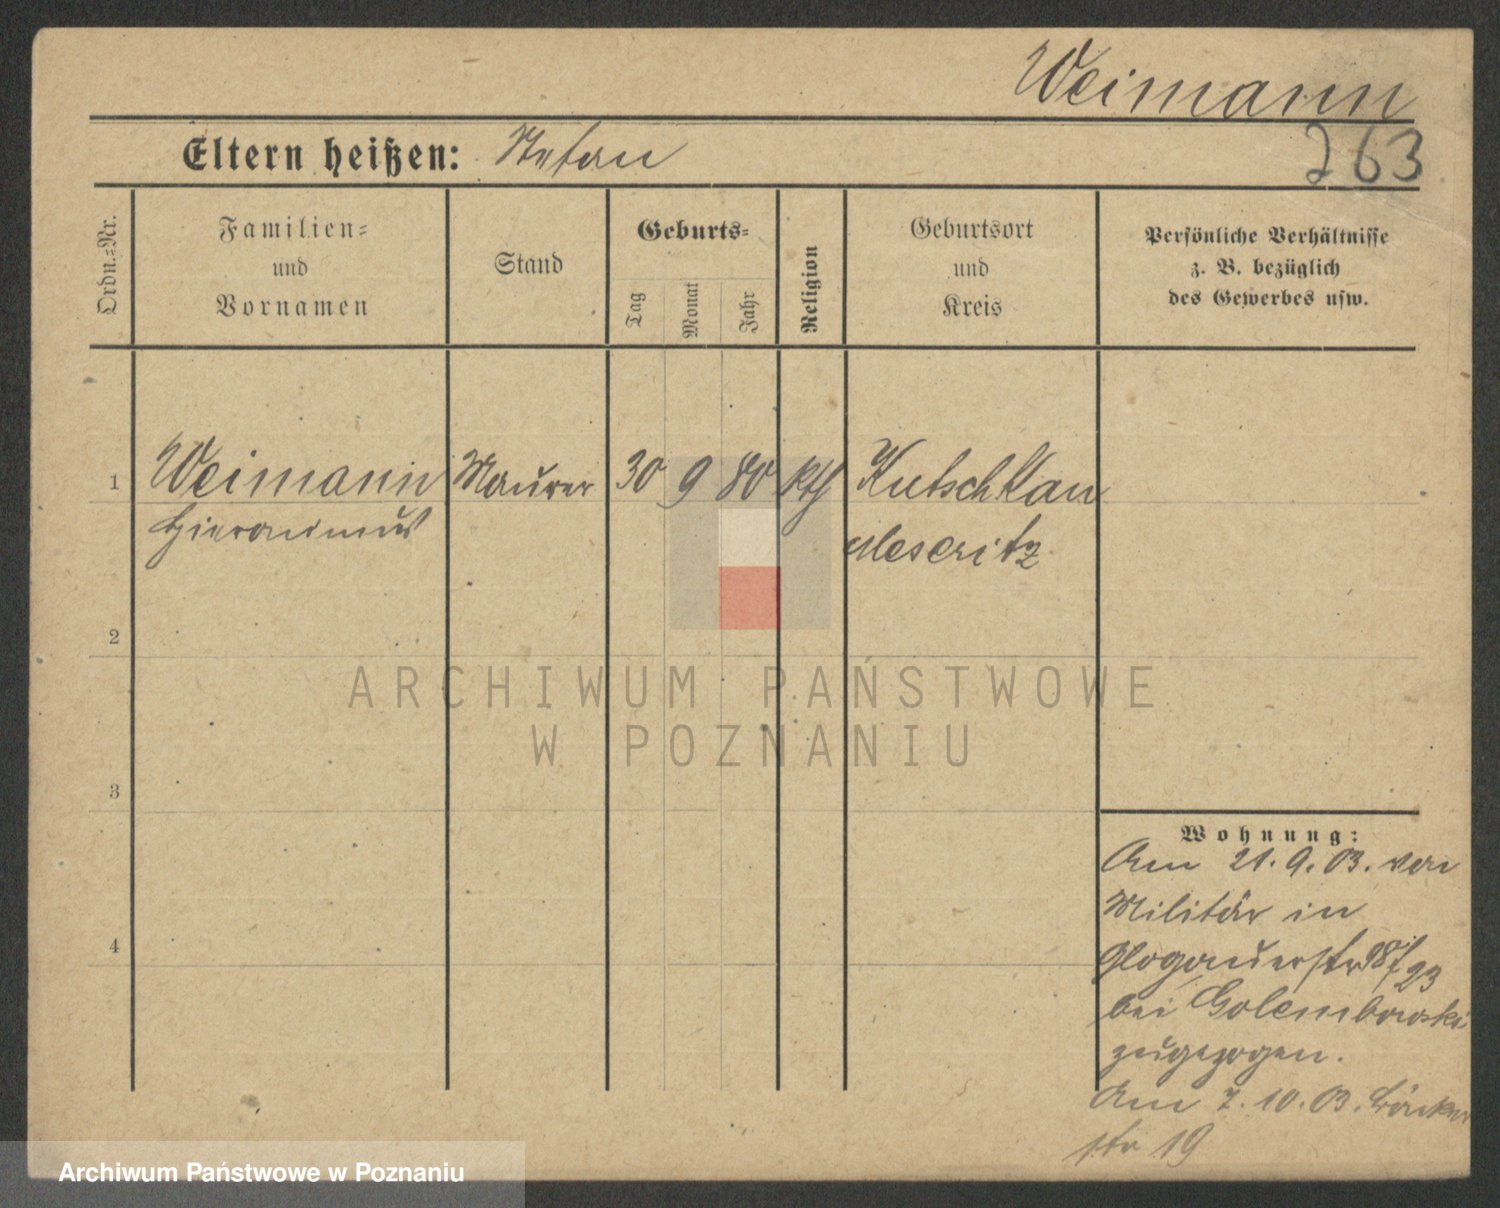 Weimann
263
Eltern heißen: Stefan
Ordn.-Nr.
Familien-
und
Vornamen
Stand
Geburts-
Tag
Monat
Jahr
Religion
Geburtsort
und
Kreis
Persönliche Verhältnisse
z. B. bezüglich
des Gewerbes usw.
1 Weimann Maurer 30 9 80 kth Kutschkau
Hieronimus Meseritz
2
ARCHIWUM PAŃSTWOWE
W POZNANIU
3
Wohnung:
Am 21.9.03. von
Militär in
4
Glogauerstr 98/23
bei Golembowski
zugezogen.
Am 7.10.03. Bäcker
str 19
Archiwum Państwowe w Poznaniu